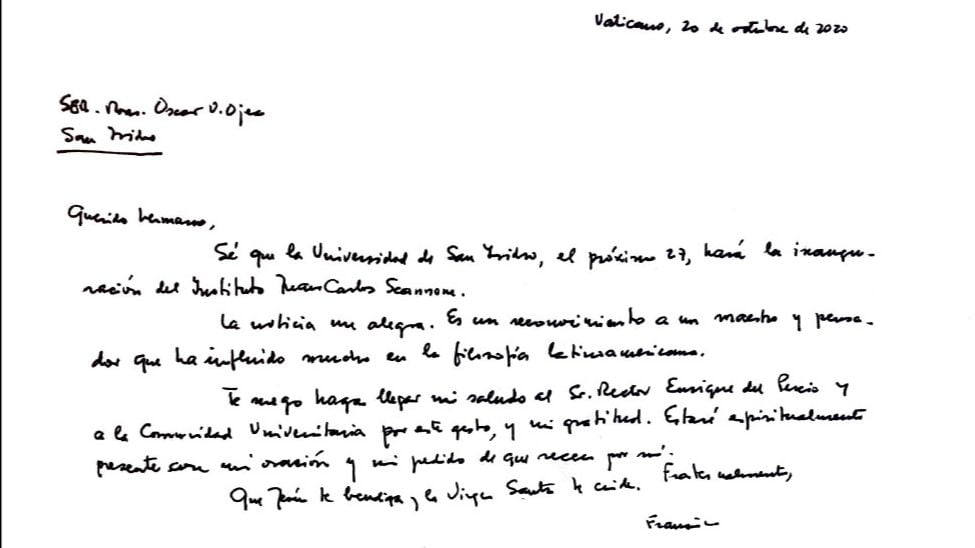 Vaticano, 20 de octubre de 2020
SER. Mons. Oscar V. Ojea
San Isidro
Querido hermano,
Sé que la Universidad de San Isidro, el próximo 27, hará la inaugu-
ración del Instituto Juan Carlos Scannone.
La noticia me alegra. Es un reconocimiento a un maestro y pensa-
dor que ha influido mucho en la filosofía latinoamericana.
Te ruego haga llegar mi saludo al Sr. Rector Enrique del Percio y
a la Comunidad Universitaria por este gesto, y mi gratitud. Estaré espiritualmente
presente con mi oración y mi pedido de que recen por mí.
Que Jesús te bendiga y la Virgen Santa te cuide. Fraternalmente,
Francisco